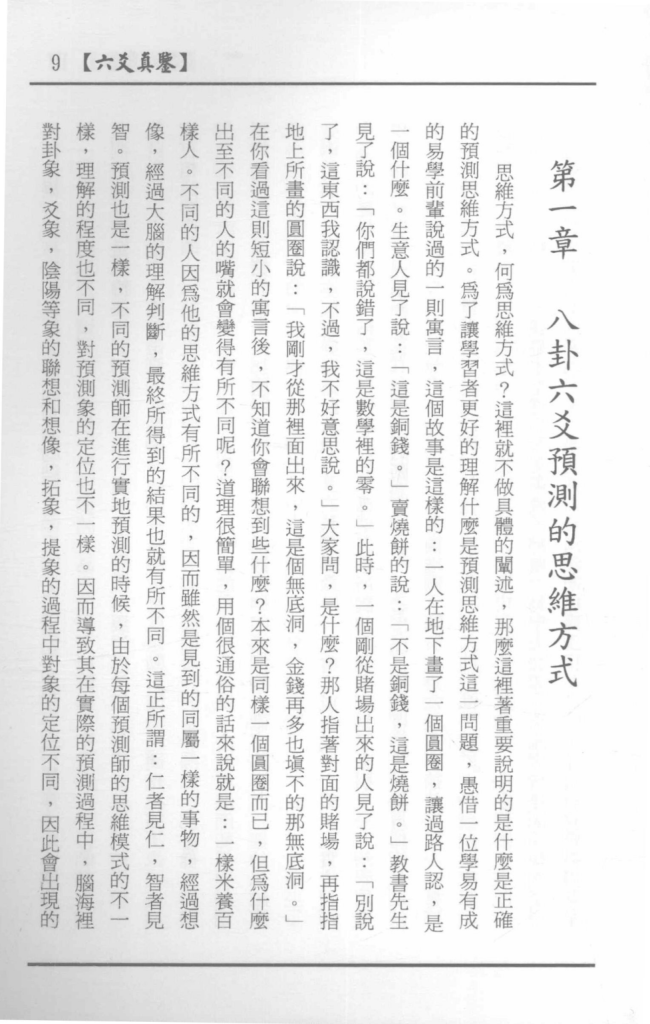 9 【六爻真鑒】
第一章 八卦六爻預測的思維方式
思維方式，何爲思維方式？這裡就不做具體的闡述，那麼這裡著重要說明的是什麼是正確
的預測思維方式。爲了讓學習者更好的理解什麼是預測思維方式這一問題，愚借一位學易有成
的易學前輩說過的一則寓言，這個故事是這樣的：一人在地下畫了一個圓圈，讓過路人認，是
一個什麼。生意人見了說：「這是銅錢。」賣燒餅的說：「不是銅錢，這是燒餅。」教書先生
見了說：「你們都說錯了，這是數學裡的零。」此時，一個剛從賭場出來的人見了說：「別說
了，這東西我認識，不過，我不好意思說。」大家問，是什麼？那人指著對面的賭場，再指指
地上所畫的圓圈說：「我剛才從那裡面出來，這是個無底洞，金錢再多也塡不的那無底洞。」
在你看過這則短小的寓言後，不知道你會聯想到些什麼？本來是同樣一個圓圈而已，但爲什麼
出至不同的人的嘴就會變得有所不同呢？道理很簡單，用個很通俗的話來說就是：一樣米養百
樣人。不同的人因爲他的思維方式有所不同的，因而雖然是見到的同屬一樣的事物，經過想
像，經過大腦的理解判斷，最終所得到的結果也就有所不同。這正所謂：仁者見仁，智者見
智。預測也是一樣，不同的預測師在進行實地預測的時候，由於每個預測師的思維模式的不一
樣，理解的程度也不同，對預測象的定位也不一樣。因而導致其在實際的預測過程中，腦海裡
對卦象，爻象，陰陽等象的聯想和想像，拓象，提象的過程中對象的定位不同，因此會出現的